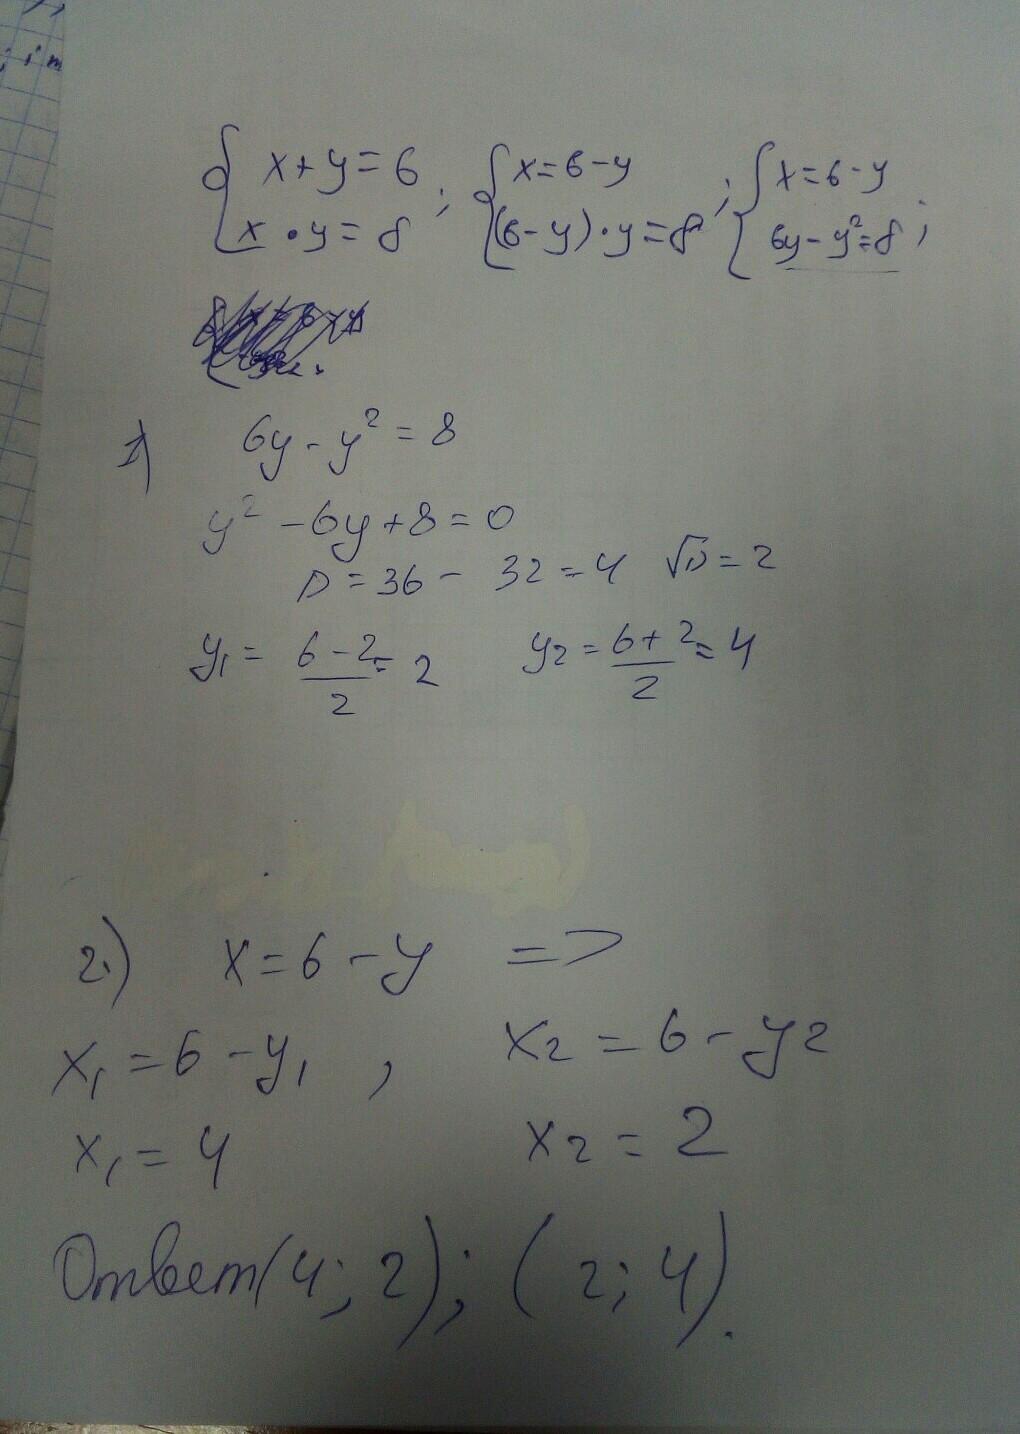 { x + y = 6 ; { x = 6 - y ; { x = 6 - y ;
x · y = 8 (6 - y) · y = 8 6y - y² = 8
1) 6y - y² = 8
y² - 6y + 8 = 0
D = 36 - 32 = 4 √D = 2
y₁ = (6 - 2)/2 = 2 y₂ = (6 + 2)/2 = 4
2.) x = 6 - y =>
x₁ = 6 - y₁ , x₂ = 6 - y₂
x₁ = 4 x₂ = 2
Ответ (4; 2); (2; 4).